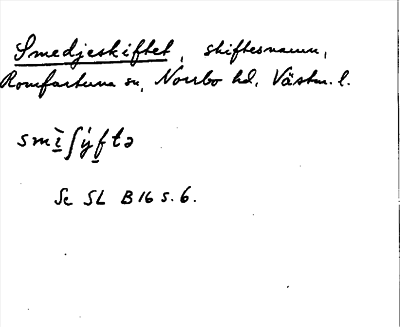 Smedjeskiftet, skiftesnamn,
Romfartuna sn, Norrbo hd, Västm. l.
smì̱ʃýf̱tə
Se SL B 16 s. 6.